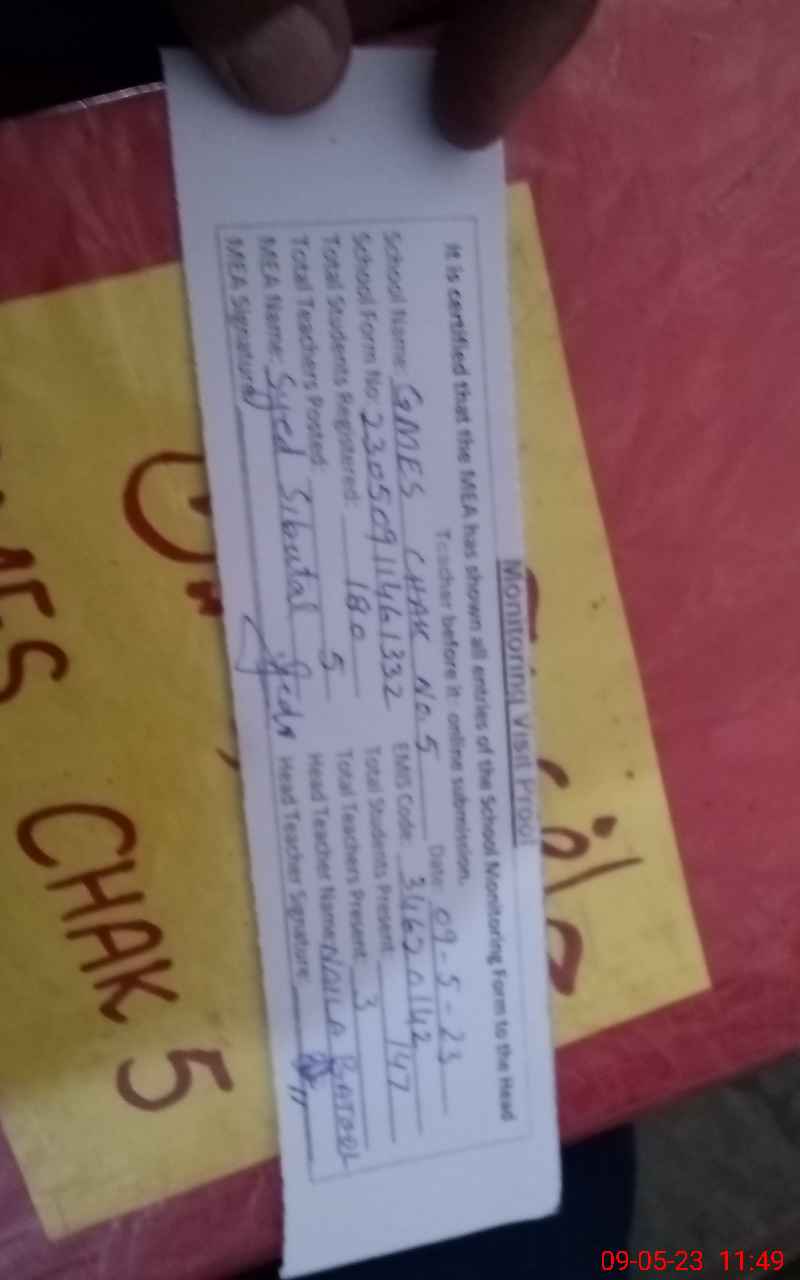 Monitoring Visit Proof
It is certified that the MEA has shown all entries of the School Monitoring Form to the Head
Teacher before it online submission.
Date: 09-5-23
School Name: GMES CHAK No. 5 EMIS Code:
School Form No: 23050911461332 Total Students Present: 147
Total Students Registered: 180 Total Teachers Present: 3
Total Teachers Posted: 5 Head Teacher Name: NAILA BATOOL
MEA Name: Syed Sibutal Head Teacher Signature:
MEA Signature
CHAK 5
09-05-23 11:49